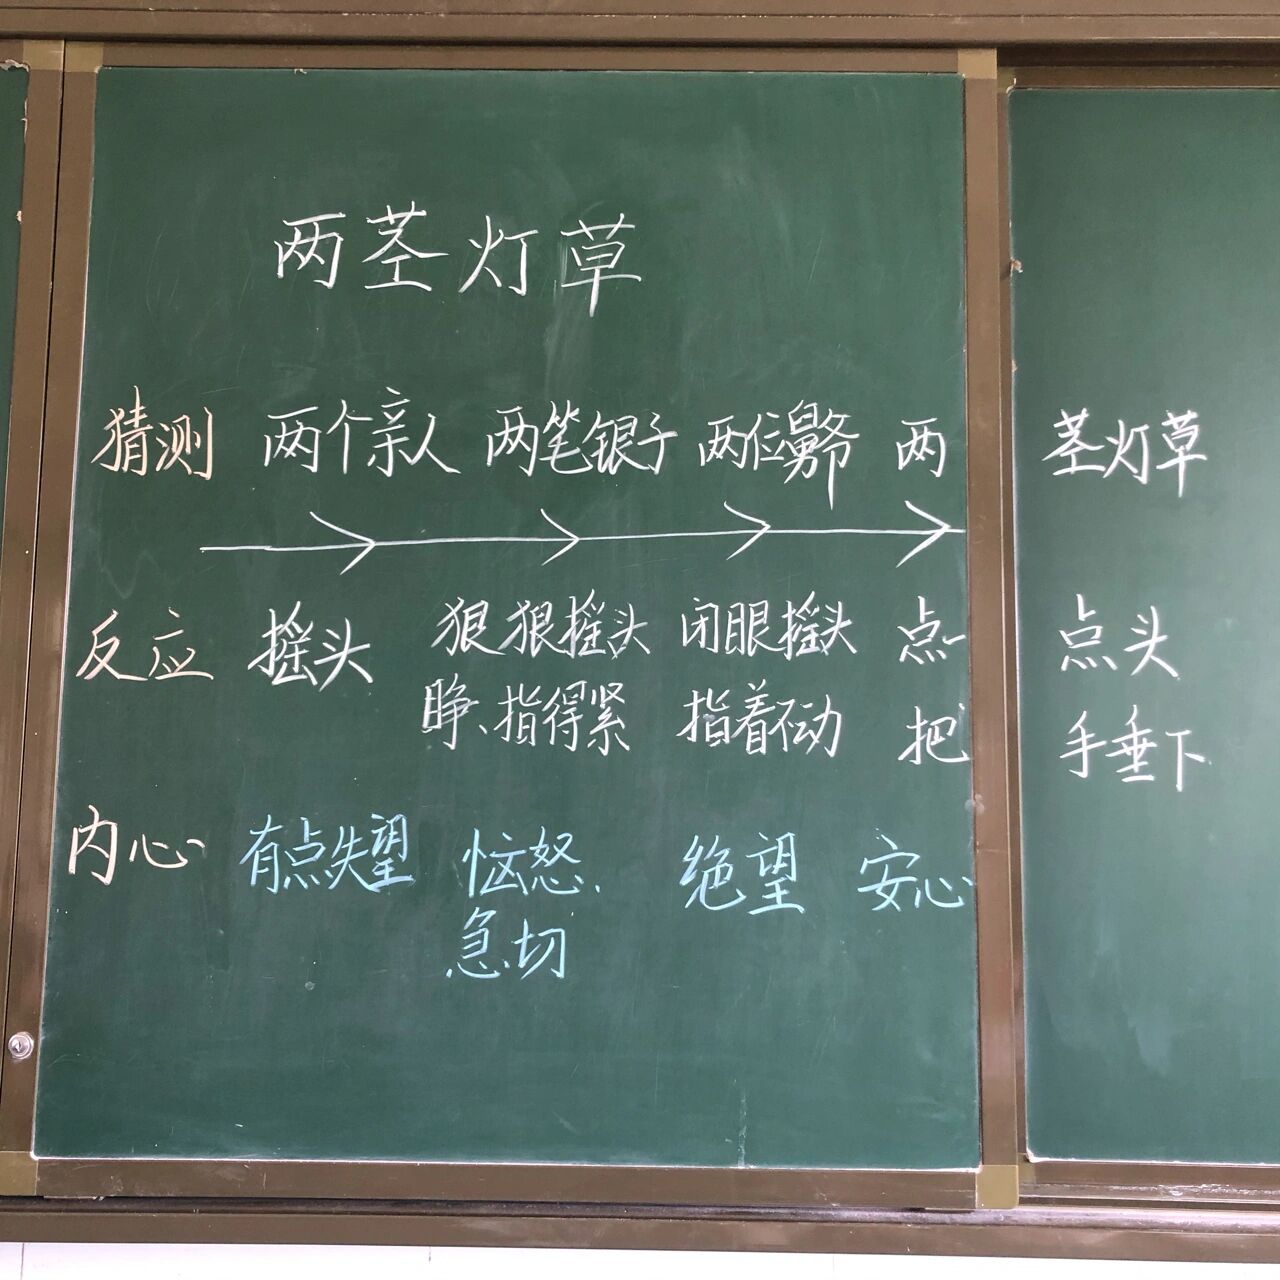 两茎灯草
猜测 两个亲人 两笔银子 两位舅爷 两 茎灯草
反应 摇头 狠狠摇头 闭眼摇头 点一 点头
睁、指得紧 指着不动 把 手垂下
内心 有点失望 恼怒、 绝望 安心
急切